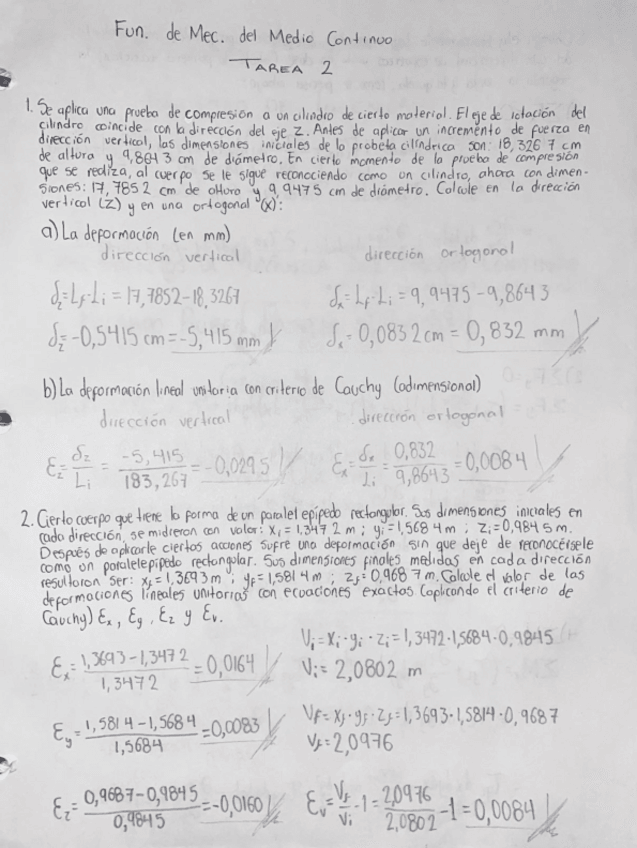 Fun. de Mec. del Medio Continuo
TAREA 2
1. Se aplica una prueba de compresión a un cilindro de cierto material. El eje de rotación del
cilindro coincide con la dirección del eje Z. Antes de aplicar un incremento de fuerza en
dirección vertical, las dimensiones iniciales de la probeta cilíndrica son: 18,3267 cm
de altura y 9,8643 cm de diámetro. En cierto momento de la prueba de compresión
que se realiza, al cuerpo se le sigue reconociendo como un cilindro, ahora con dimen-
siones: 17,7852 cm de altura y 9,9475 cm de diámetro. Calcule en la dirección
vertical (Z) y en una ortogonal (x):
a) La deformación (en mm)
dirección vertical dirección ortogonal
δz = Lf - Li = 17,7852 - 18,3267 δx = Lf - Li = 9,9475 - 9,8643
δz = -0,5415 cm = -5,415 mm δx = 0,0832 cm = 0,832 mm
b) La deformación lineal unitaria con criterio de Cauchy (adimensional)
dirección vertical dirección ortogonal
εz = δz/Li = -5,415/183,267 = -0,0295 εx = δx/Li = 0,832/9,8643 = 0,0084
2. Cierto cuerpo que tiene la forma de un paralelepípedo rectangular. Sus dimensiones iniciales en
cada dirección, se midieron con valor: xi = 1,3472 m ; yi = 1,5684 m ; zi = 0,9845 m.
Después de aplicarle ciertas acciones sufre una deformación sin que deje de reconocérsele
como un paralelepípedo rectangular. Sus dimensiones finales medidas en cada dirección
resultaron ser: xf = 1,3693 m ; yf = 1,5814 m ; zf = 0,9687 m. Calcule el valor de las
deformaciones lineales unitarias con ecuaciones exactas (aplicando el criterio de
Cauchy) εx, εy, εz y εv.
εx = 1,3693 - 1,3472/1,3472 = 0,0164
Vi = xi · yi · zi = 1,3472 · 1,5684 · 0,9845
Vi = 2,0802 m
εy = 1,5814 - 1,5684/1,5684 = 0,0083
Vf = xf · yf · zf = 1,3693 · 1,5814 · 0,9687
Vf = 2,0976
εz = 0,9687 - 0,9845/0,9845 = -0,0160
εv = Vf/Vi - 1 = 2,0976/2,0802 - 1 = 0,0084